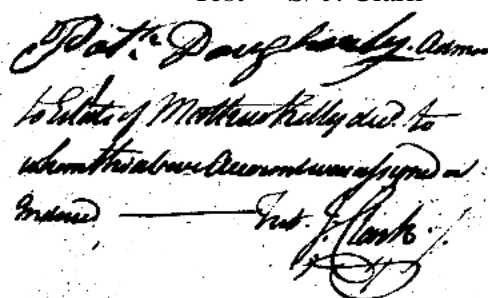 Test S. J. Clark
Patk. Daugherty. Admr
to Estate of Matthew Kelly decd. to
whom this above Account was assigned or
Indored ——— Test. J. Clark